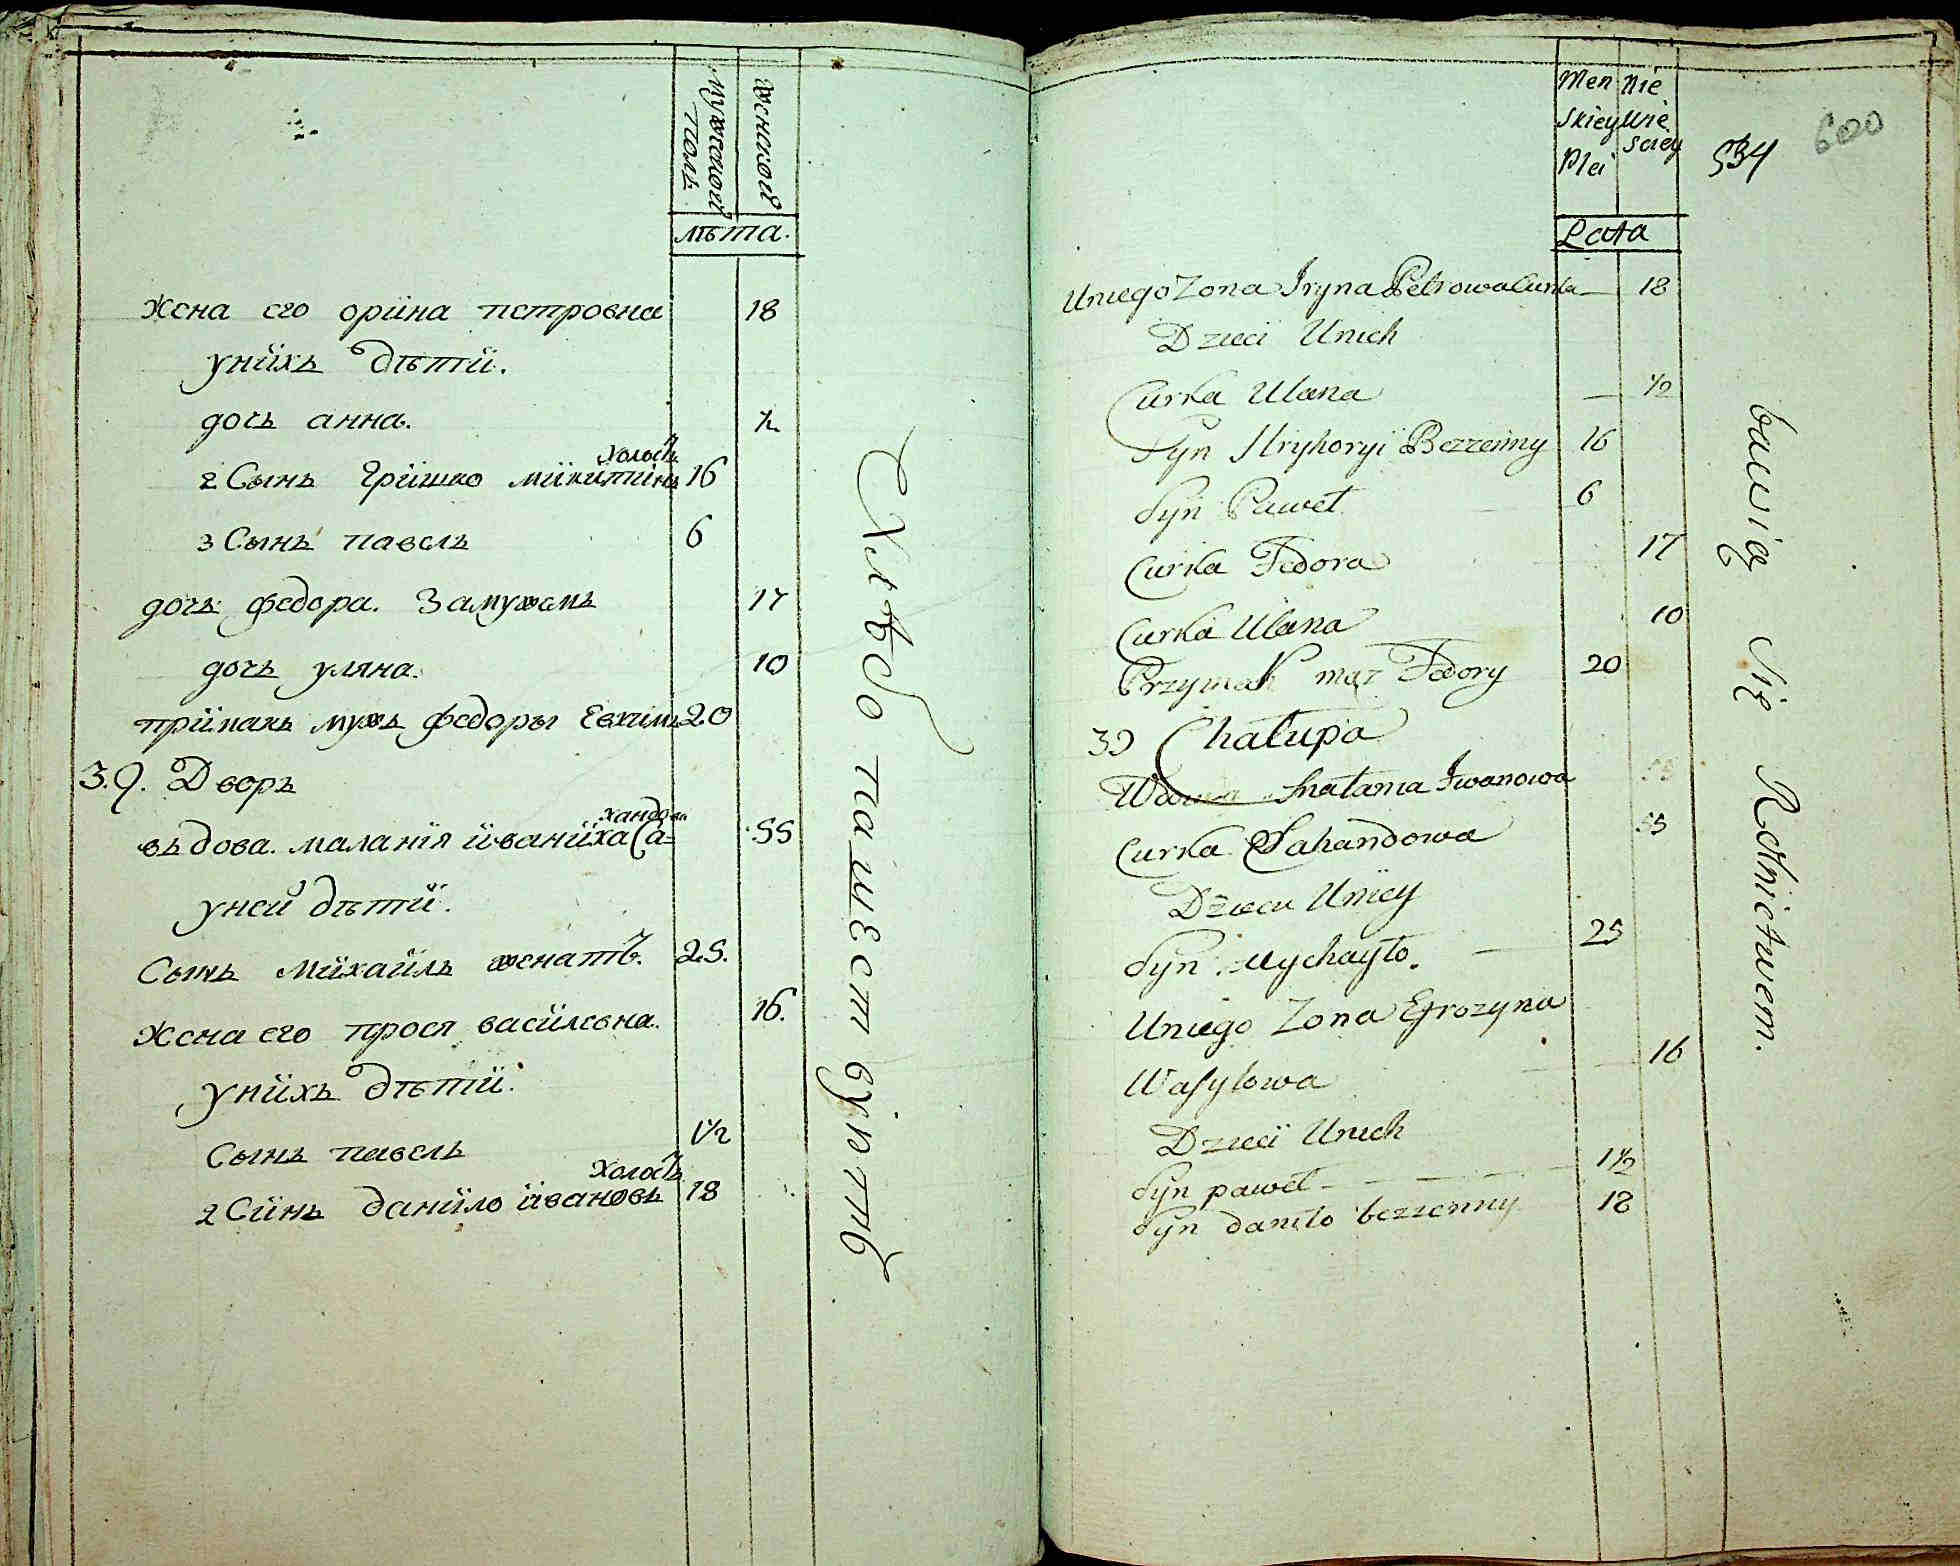 мужской
полъ
женской
лѣта.
Жена его орiина петровна 18
унiихъ дѣтiи.
дочь анна. ½
холостъ
2 Сынъ Грiишко миикиитiинъ 16
3 Сынъ павелъ 6
дочь федора. Замужемъ 17
дочь уляна. 10
прiимакъ мужъ федоры Евхимъ 20
39. Дворъ
хандова
въдова. маланiя iиванiиха Са= 55
уней дѣтiи.
Сынъ миихаiилъ женатъ. 25.
Жена его прося васiилевна. 16.
унiихъ дѣтiи.
Сынъ павелъ 1½
холостъ
2 Сiинъ данiило iивановъ 18
Хлѣбопашествуютъ
Men
skiey
Płci
Nie
wie
sciey
534
600
Lata
Uniego Zona Iryna Petrowa Curka — 18
Dzieci Unich
Curka Ulana — ½
Syn Hryhoryi Bezzenny 16
Syn Paweł 6
Curka Fedora 17
Curka Ulana 10
Przymak mąz Fedory 20
39 Chałupa
Wdowa Małania Iwanowa 55
Curka Sahandowa 55
Dzieci Uniey
Syn Mychayło. — 25
Uniego Zona Efrozyna
Wasylowa — 16
Dzieci Unich
Syn paweł — 1½
Syn daniło bezzenny 18
bawią Się Rolnictwem.